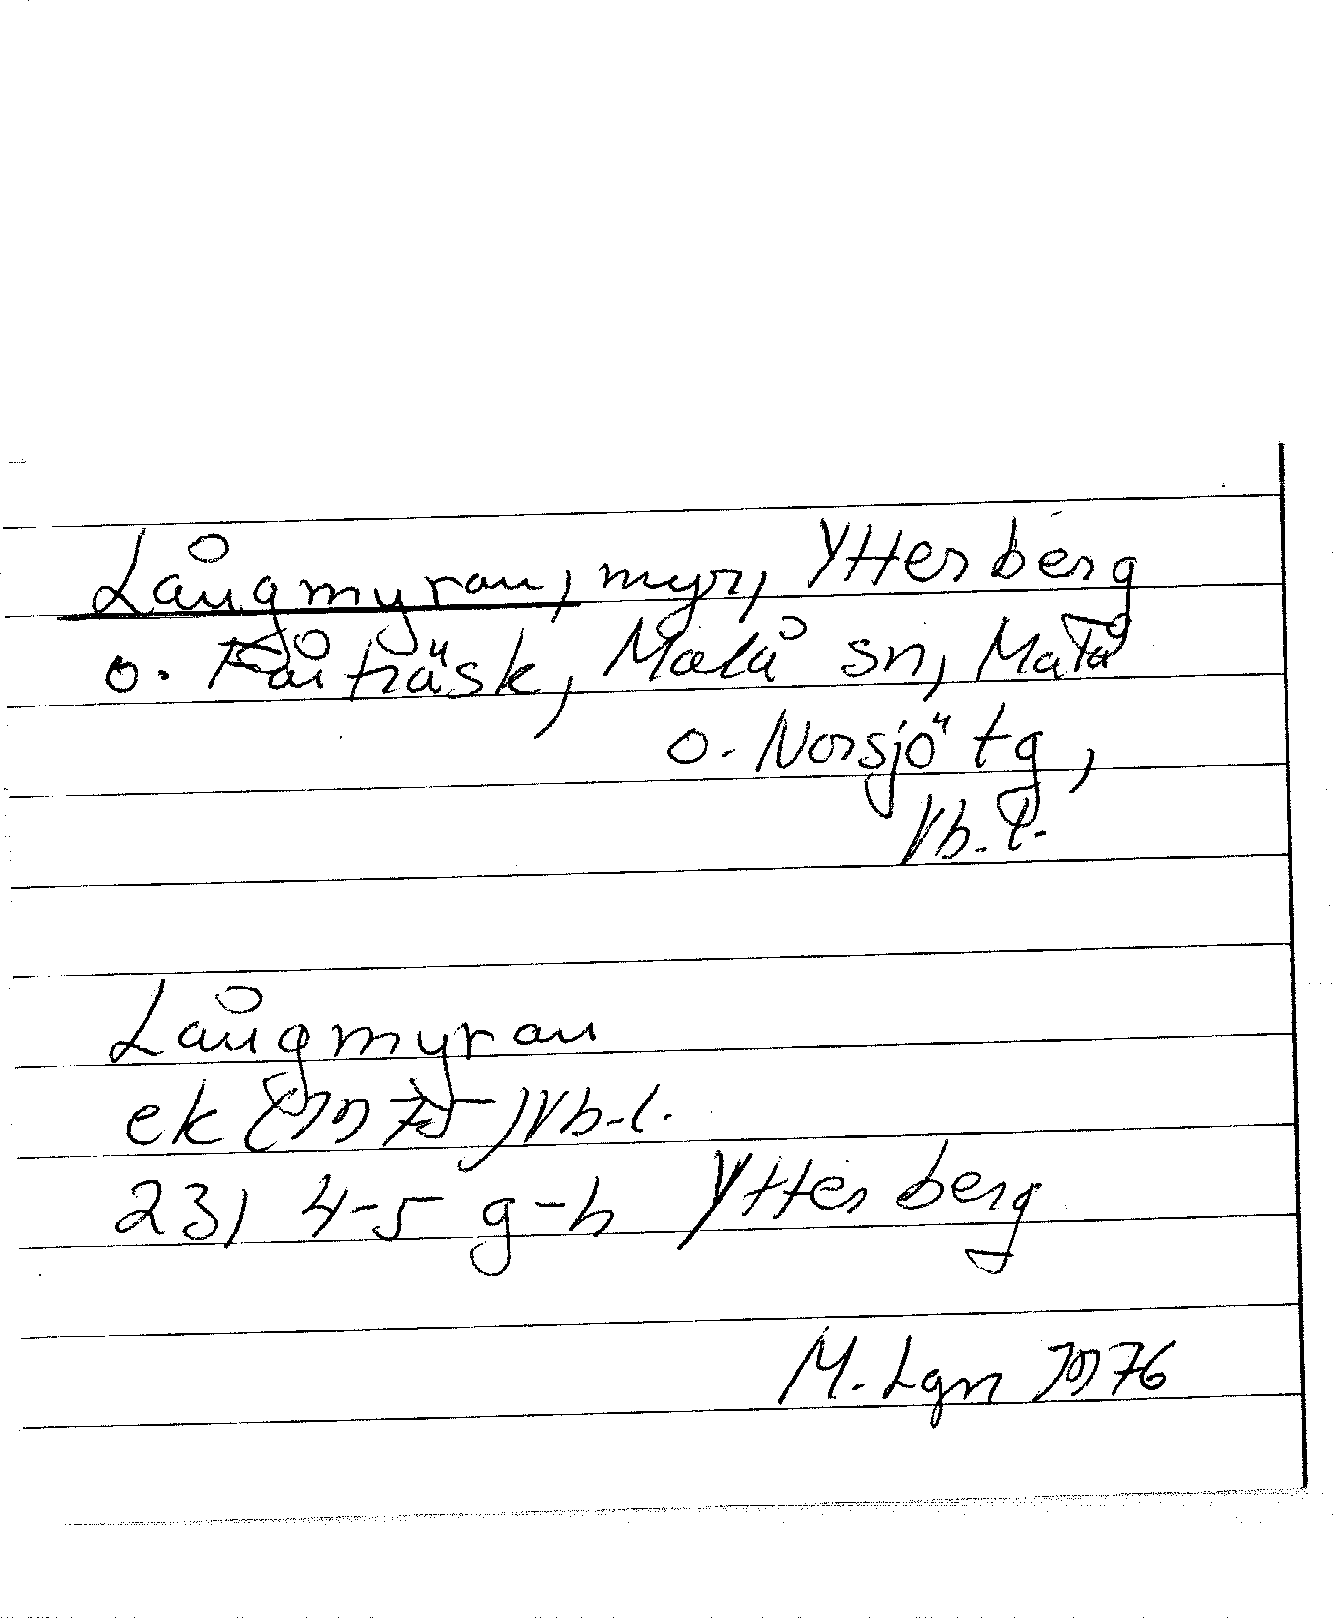 Långmyran, myr, Ytterberg
o. Fårträsk, Malå sn, Malå
o. Norsjö tg,
Vb. l.
Långmyran
ek (1975) Vb. l.
23I 4-5 g-h Ytterberg
M. Lgn 1976